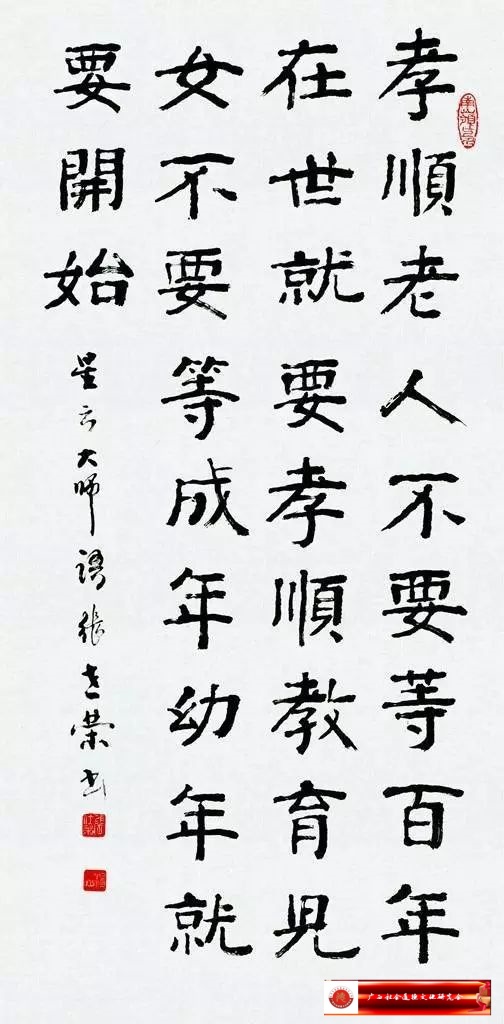 孝順老人不要等百年
在世就要孝順教育兒
女不要等成年幼年就
要開始
星云大师語張榮书
广西社会道德文化研究会